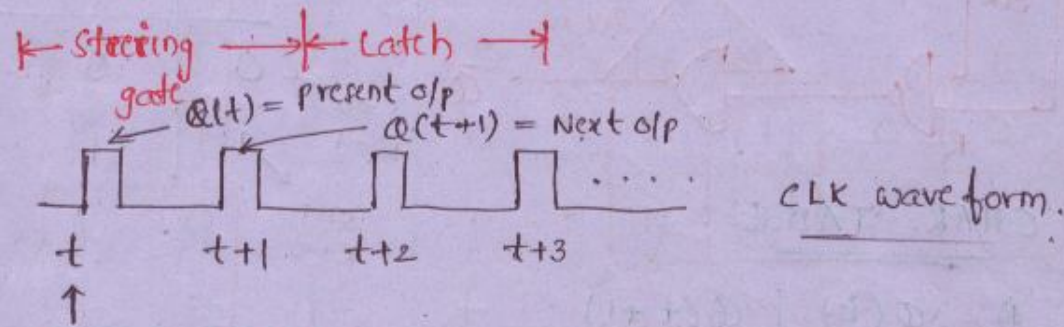 Steering Latch
gate Q(t) = present o/p
Q(t+1) = Next o/p
.....
CLK waveform.
t t+1 t+2 t+3